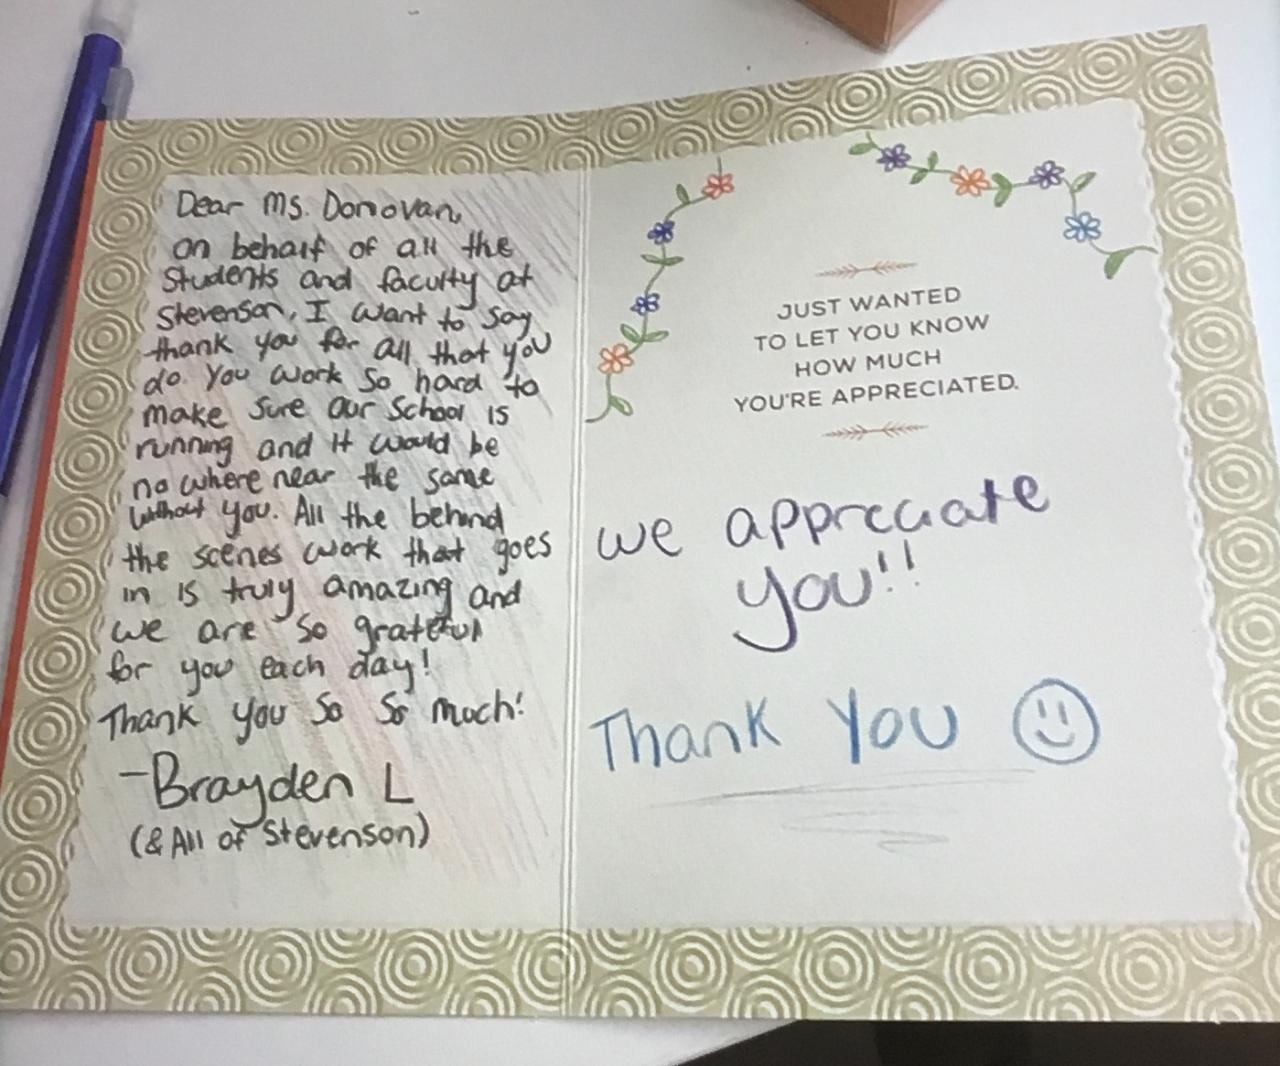 Dear Ms. Donovan,
on behalf of all the
Students and faculty at
Stevenson, I want to say
thank you for all that you
do. You work so hard to
make sure our School is
running and it would be
no where near the same
without you. All the behind
the scenes work that goes
in is truly amazing and
we are so grateful
for you each day!
Thank you so so much!
-Brayden L
(& All of Stevenson)
JUST WANTED
TO LET YOU KNOW
HOW MUCH
YOU'RE APPRECIATED.
we appreciate
you!!
Thank You